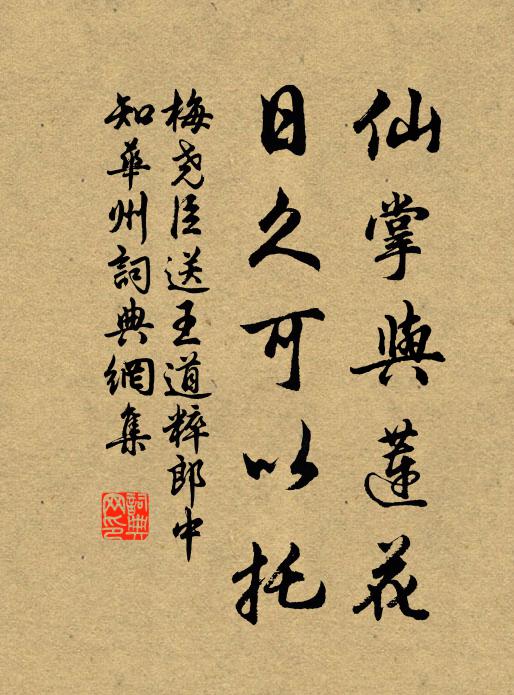 仙掌與蓮花
日久可以托
梅堯臣送王道粹郎中
知華州詞典網集
詞典
网印